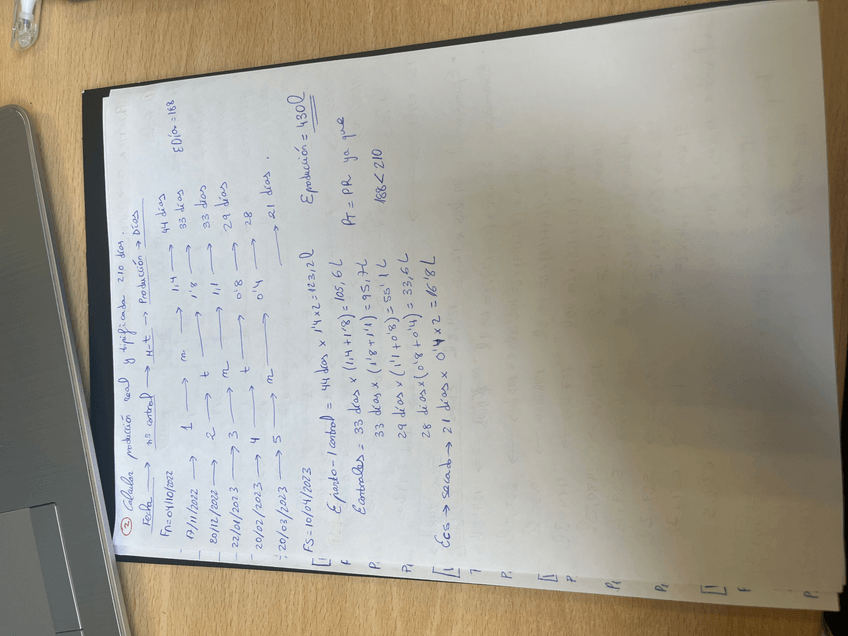 ② Calcular producción real y tipificada 210 días.
Fecha → nº control → M-t → Producción → Días
FN=04/10/2022
- 17/11/2022 → 1 → m → 1,4 → 44 días
- 20/12/2022 → 2 → t → 1'8 → 33 días
- 22/01/2023 → 3 → m → 1,1 → 33 días
- 20/02/2023 → 4 → t → 0'8 → 29 días
- 20/03/2023 → 5 → m → 0'4 → 28
FS=10/04/2023 → 21 días.
ΣDía=188
Σ parto-1 control = 44 días x 1'4 x 2 = 123,2 l
Σ controles = 33 días x (1,4+1'8) = 105,6 L
33 días x (1'8+1'1) = 95,7 L
29 días x (1'1+0'8) = 55'1 L
28 días x (0'8+0'4) = 33,6 L
Σc5 → secado → 21 días x 0'4 x 2 = 16'8 L
Σ producción = 430 l
PT = PR ya que
188 < 210